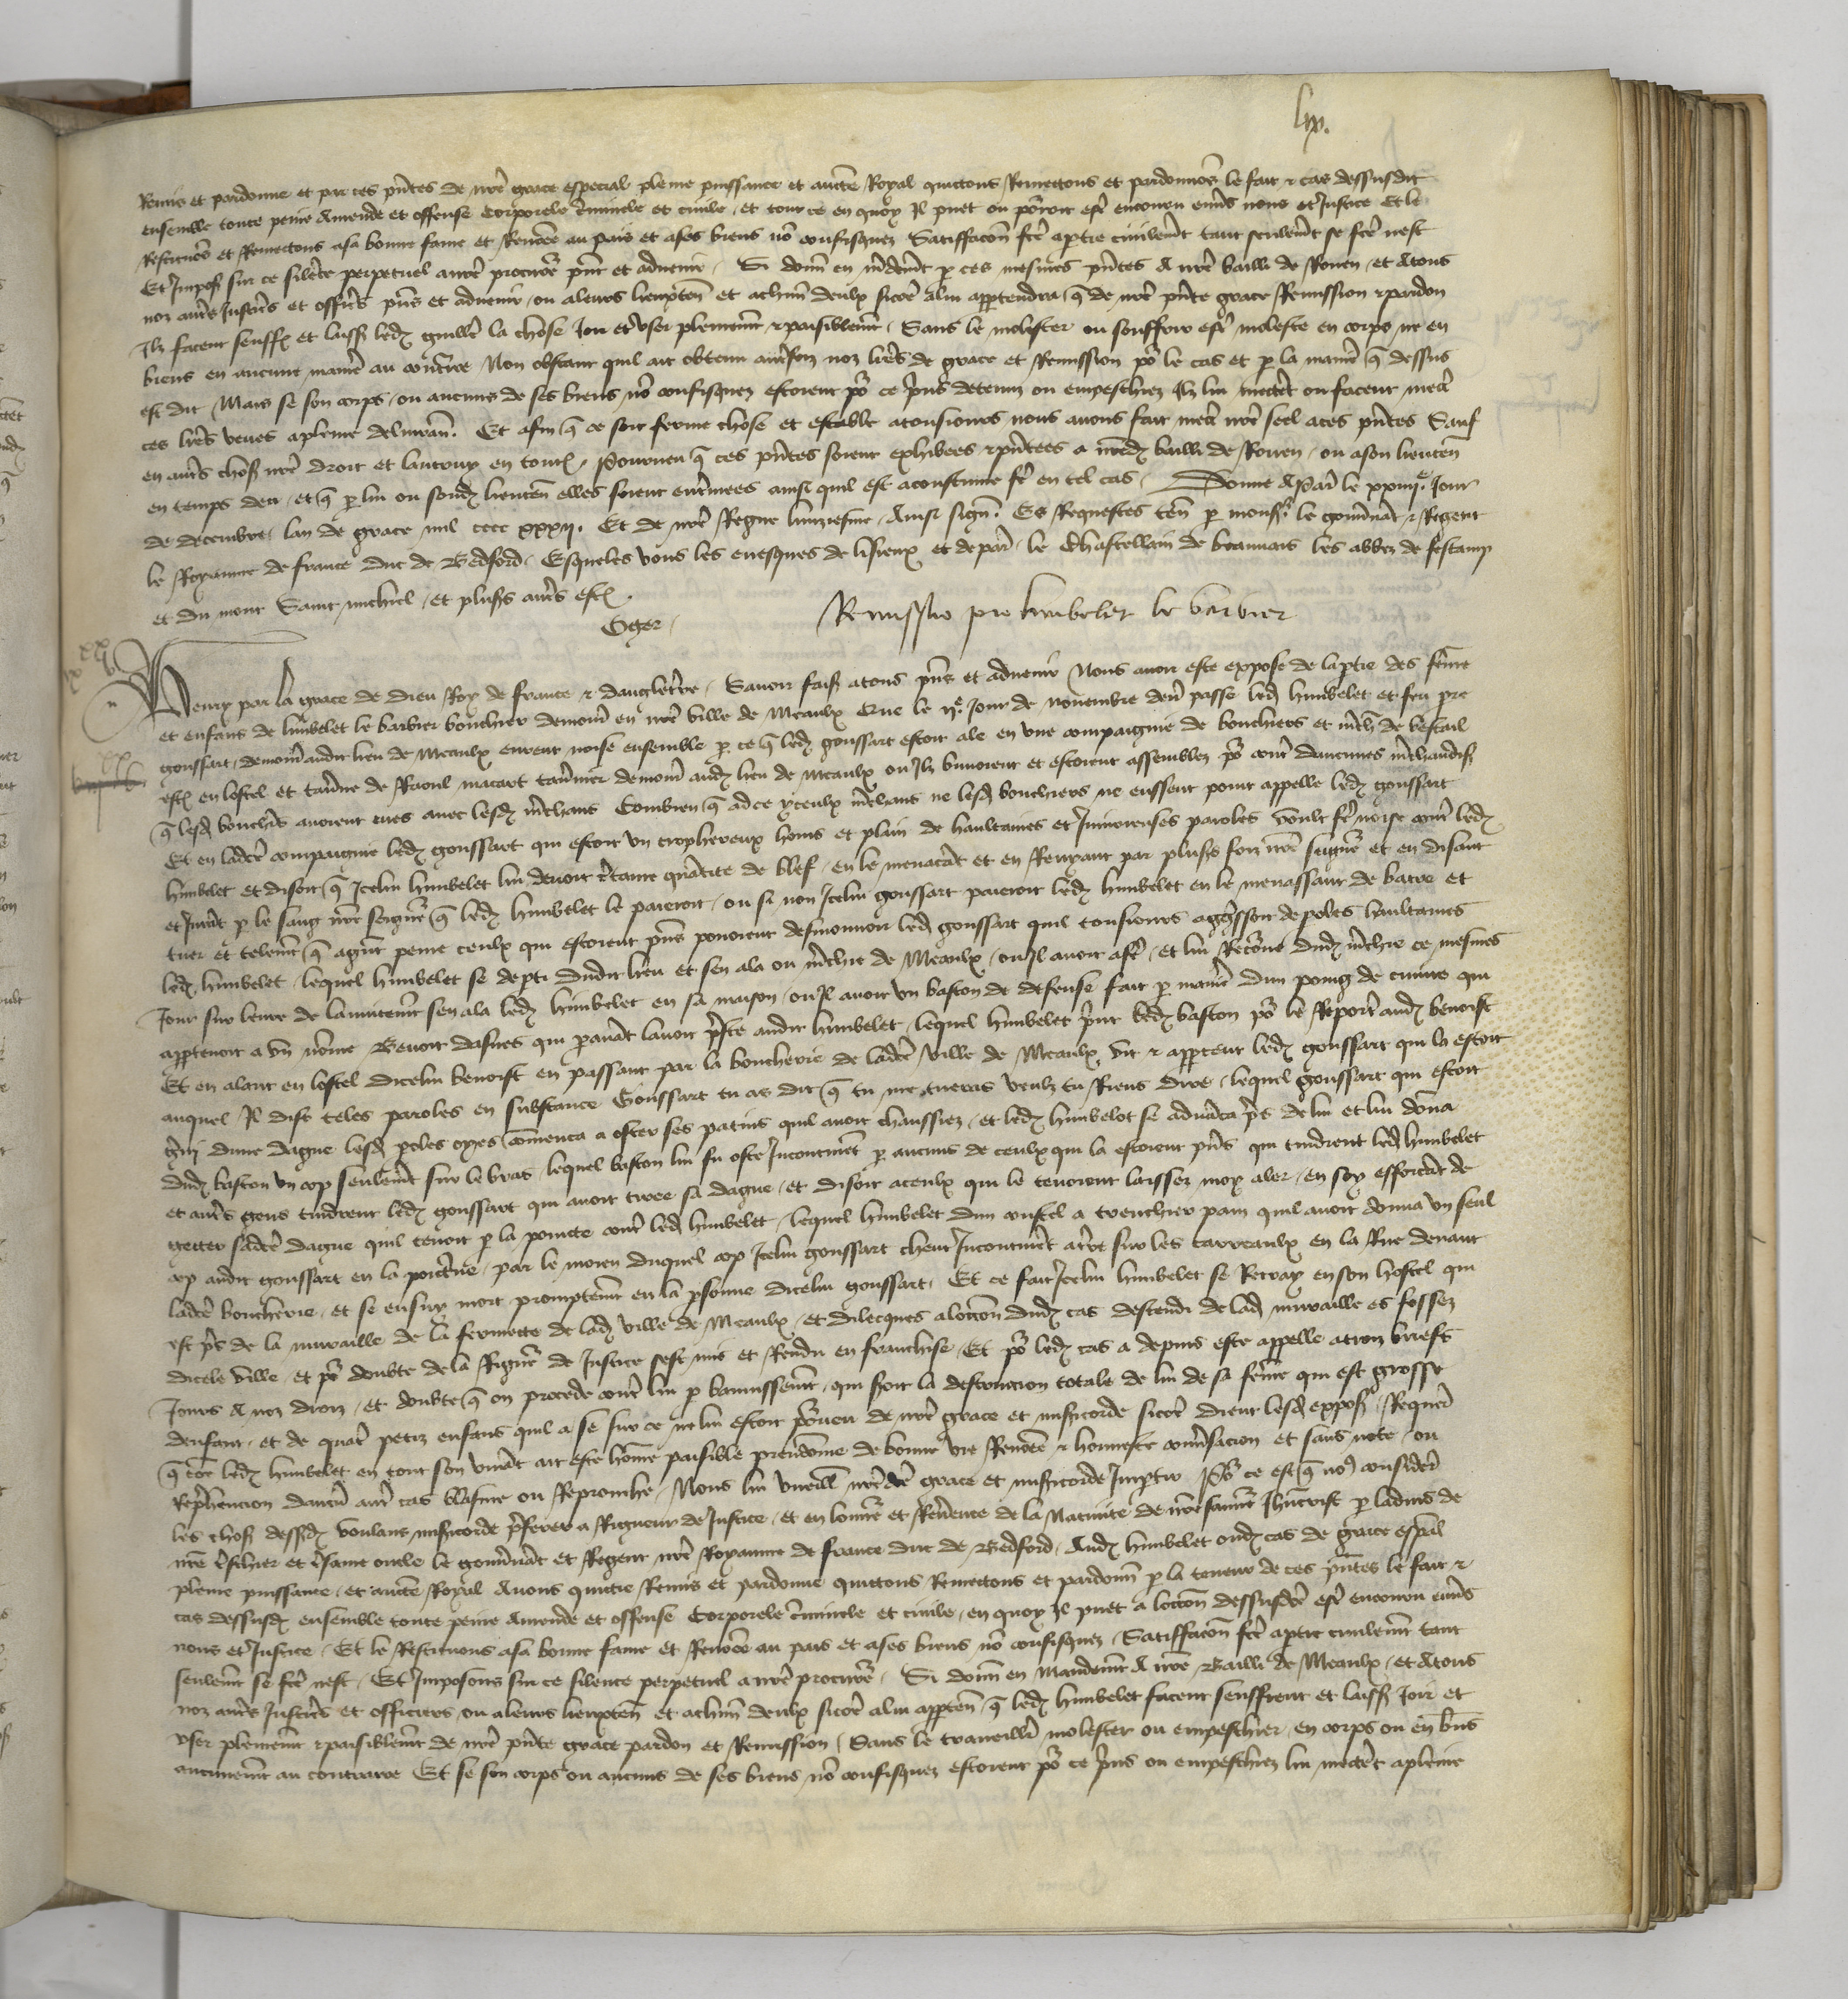 lix.
Remis et pardonne et par ces pntes de nre grace especial pleine puissance et aucte Royal quictons Remettons et pardonnos le fait & cas dessusdit
ensemble toute peine Amende et offense Corporele Criminele et civile et tout ce en quoy Il puet ou porroit estre encouru envers nous et Justice et le
Restituons et Remettons a sa bonne fame et Renomee au pais et a ses biens no confisquez Satisfaccon fce a ptie civilemt tant seulemt se fce nest
Et Imposs sur ce silence perpetuel a nre procure pnt et advenir Si donn en mandemt p ces mesmes pntes A nre bailli de Rouen et Atous
noz autres Justiciers et officiers pns et advenir ou a leurs lieuxten et a chun deulx sicoe alui appartendra q de nre pnte grace Remission & pardon
Ilz facent seuffrent et laissent ledit la chose Joir et user plenemt & paisiblemt Sans le molester ou souffrir estre moleste en corps ne en
biens en aucune maniere au contraire Non obstant quil ait obtenu autresfoiz noz lres de grace et Remission po le cas et p la maniere q dessus
est dit Mais se son corps ou aucuns de ses biens no confisquez estoient po ce prins detenuz ou empeschiez Ilz lui mettent ou facent mectre
ces lres veues a pleine delivrance. Et afin q ce soit ferme chose et estable a tousiours nous avons fait mectre nre seel a ces pntes Sauf
en autres choses nre droit et lautruy en toutes Pourveu q ces pntes soient exhibees & pntees a nredit bailli de Rouen ou a son lieuten
en temps deu et q p lui ou sondit lieuten elles soient enterinees ainsi quil est acoustume fere en tel cas Donne A Paris le xxiiije Jour
de decembre lan de grace mil cccc xxxij. Et de nre Regne unziesme Ainsi sign. Es Requestes ten p mons le gouvnant & Regent
le Royaume de france duc de Bedford Esqueles vous les evesques de lisieux et de paris le Chastellain de beauvais les abbez de fescamp
et du mont Saint michiel et plusrs autres estoient.
Gger
Remissio pro humbelet le barbier
Henry par la grace de dieu Roy de france & dangleterre Savoir fais atous pns et advenir Nous avoir este expose de la ptie des feme
et enfans de humbelet le barbier bouchier demourant en nre ville de Meaulx Que le ije Jour de novembre dern passe ledit humbelet et feu pre
goussart demourant audit lieu de Meaulx eurent noise ensemble p ce q ledit goussart estoit ale en une compaignie de bouchiers et mchans de bestail
estans en lostel et taverne de Raoul macart tavernier demourant audit lieu de Meaulx ou Ilz buvoient et estoient assemblez po compte daucunes mchandises
q lesdis bouchiers avoient eues avec lesdis mchans Combien q ad ce yceulx mchans ne lesdis bouchiers ne eussent point appelle ledit goussart
Et en ladicte compaignie ledit goussart qui estoit un homs et plain de haultaines et Iniurieuses paroles voult fere noise contre ledit
humbelet et disoit q Icelui humbelet lui devoit ctaine quantite de blef en le menacant et en Renyant par plusrs foiz nre seigneur et en disant
et Jurant p le sang nre seigneur q ledit humbelet le paieroit ou si non Icelui goussart paieroit ledit humbelet en le menassant de batre et
tuer et telemt q a grant peine ceulx qui estoient pns povoient desmouvoir ledit goussart quil tousiours aggressoit de poles haultaines
ledit humbelet lequel humbelet se depti dudit lieu et sen ala ou mchie de Meaulx ou Il avoit afere et lui Retourne dudit mchie ce mesmes
Jour sur leure de lanuitemt sen ala ledit humbelet en sa maison ou Il avoit un baston de defense fait p maniere dun poing de cuivre qui
apptenoit a un nomme Benoit qui p avant lavoit preste audit humbelet lequel humbelet print ledit baston po le Reporter audit benoist
Et en alant en lostel dicelui benoist en passant par la boucherie de ladicte ville de Meaulx vit & apperceut ledit goussart qui la estoit
auquel Il dist teles paroles en substance Goussart tu as dit q tu me tueras veulz tu Riens dire lequel goussart qui estoit
garni dune dague lesdites poles oyes commenca a oster ses patins quil avoit chaussiez et ledit humbelet se advanca pres de lui et lui donna
dudit baston un cop seulemt sur le bras lequel baston lui fu oste Incontinent p aucuns de ceulx qui la estoient pns qui tindrent ledit humbelet
et autres gens tindrent ledit goussart qui avoit tiree sa dague et disoit a ceulx qui le tenoient laissez moy aler en soy efforcant de
getter sadicte dague quil tenoit p la pointe contre ledit humbelet lequel humbelet dun coustel a trenchier pain quil avoit donna un seul
cop audit goussart en la poictrine par le moien duquel cop Icelui goussart cheut Incontinent a terre sur les carreaulx en la Rue devant
ladicte boucherie et se ensuy mort promptemt en la psonne dicelui goussart Et ce fait Icelui humbelet se Retray en son hostel qui
est pres de la muraille de la fermette de ladite ville de Meaulx et dilecques a loccasion dudit cas descendi de ladite muraille es fossez
dicele ville et po doubte de la Rigueur de Justice sest mis et Rendu en franchise Et po ledit cas a depuis este appelle a trois briefs
Jours A noz droiz et doubte q on procede contre lui p bannissemt qui seroit la destruccion totale de lui de sa femme qui est grosse
denfant et de quatre petiz enfans quil a se sur ce ne lui estoit pourveu de nre grace et misericorde sicoe dient lesdis exposans Requerans
q coe ledit humbelet en tout son vivant ait este homme paisible preudome de bonne vie Renomee & honneste conversacion et sans note ou
Reprehencion daucun autre cas blasme ou Reprouche Nous lui vueillons nredicte grace et misericorde Impartir Po ce est q nous considere
les choses dessusdites voulans misericorde preferer a Rigueur de Justice et en lonneur et Reverence de la Nativite de nre sauveur Jhucrist p ladvis de
nre treschier et tresame oncle le gouvnant et Regent nre Royaume de france duc de Bedford Audit humbelet oudit cas de grace espal
pleine puissance et aucte Royal Avons quictie Remis et pardonne quictons Remettons et pardonn p la teneur de ces pntes le fait &
cas dessusdit ensemble toute peine Amende et offense Corporele criminele et civile en quoy Il puet a loccon dessusdicte estre encouru envers
nous et Justice Et le Restituons a sa bonne fame et Renomee au pais et a ses biens no confisquez Satisfaccon fce a ptie civilemt tant
seulemt se fce nest Et Imposons sur ce silence perpetuel a nre procure Si donn en Mandemt A nre Bailli de Meaulx et Atous
noz autres Justiciers et officiers ou a leurs lieuxten et a chun deulx sicoe a lui apparten q ledit humbelet facent seuffrent et laissent Joir et
user plenemt & paisiblemt de nre pnte grace pardon et Remission Sans le travaillier molester ou empeschier en corps ou en biens
aucunemt au contraire Et se son corps ou aucuns de ses biens no confisquez estoient po ce prins ou empeschiez lui mettent a pleine